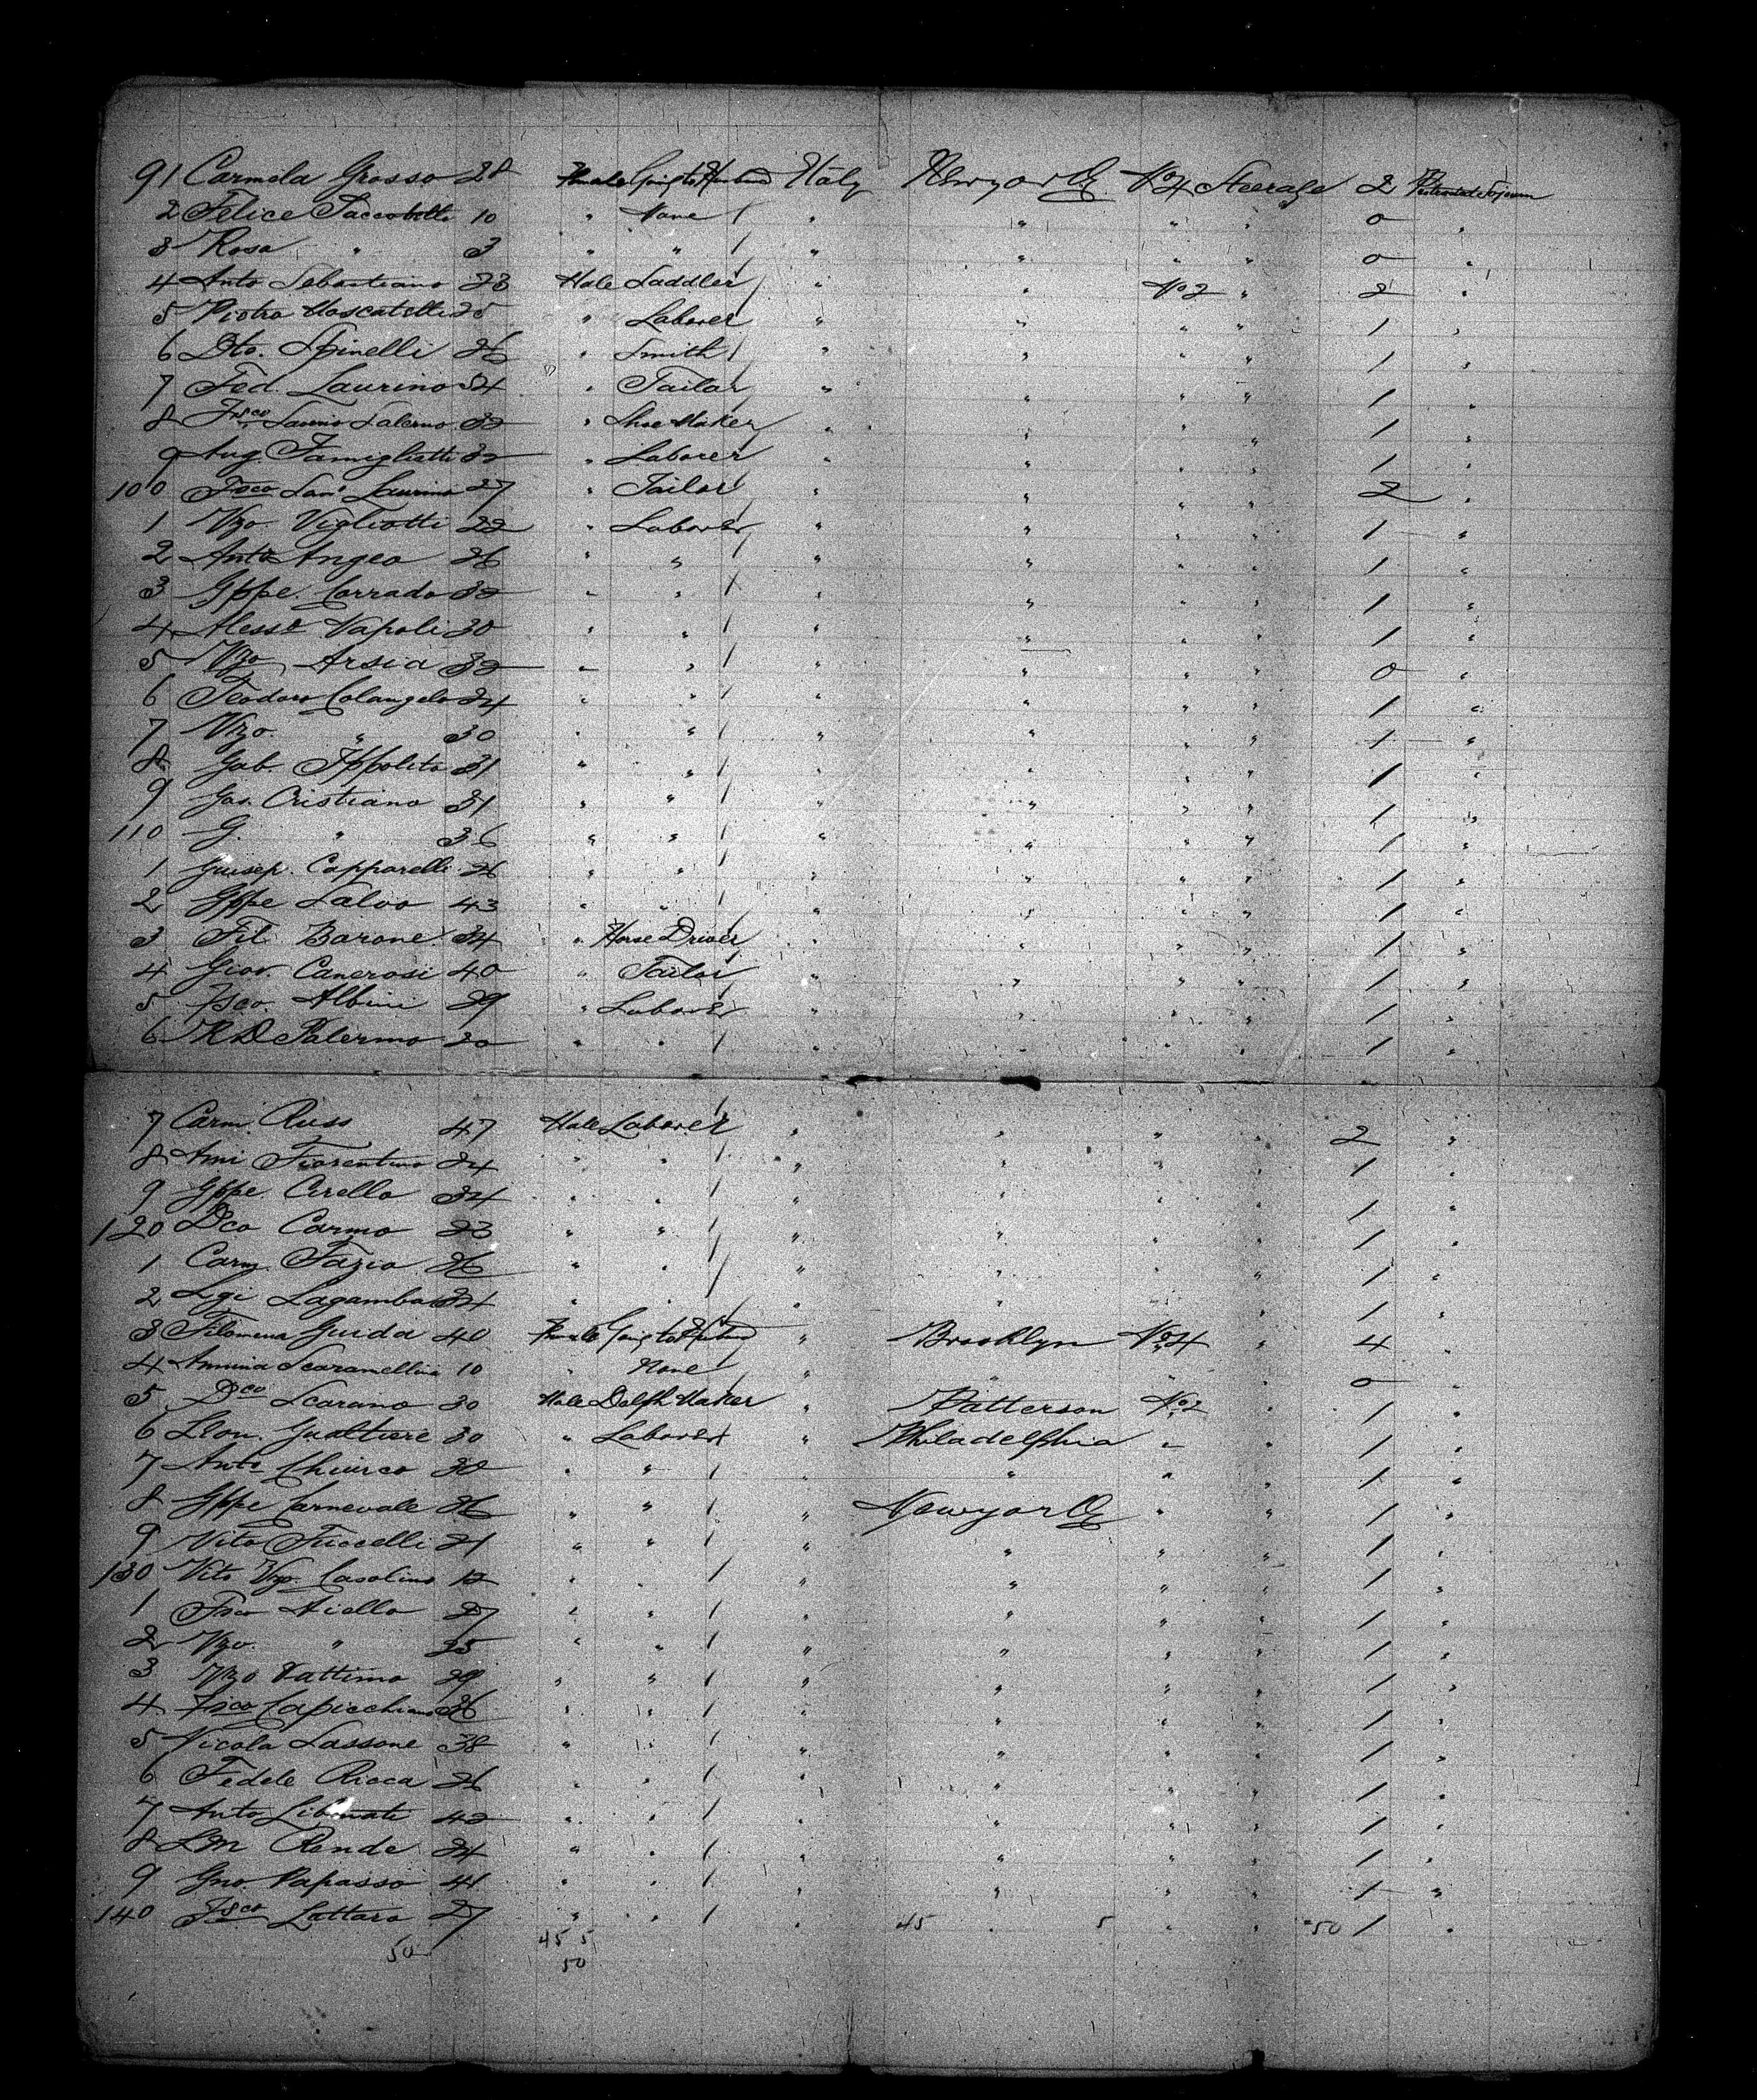 91 Carmela Grosso 28 Female Going to Husband Italy New york No 4 Steerage 2 Protracted Sojourn
2 Felice 10 " None / " " " " 0 "
3 Rosa " 3 " " / " " " " 0 "
4 Anto Sebastiano 23 Male Saddler " " No 2 " 2 "
5 Pietro Moscatelli 25 " Laborer " " " " 1 "
6 Dto. Spinelli 26 " Smith / " " " " 1 "
7 Fed. Laurino 34 " Tailor " " " " 1 "
8 Fsco Salerno 32 " Shoe Maker " " " " 1 "
9 Aug. Famiglietti 32 " Laborer " " " " 1 "
100 Fsco Sav. Laurino 27 " Tailor " " " " 2 "
1 Vzo Vigliotti 22 " Laborer " " " " 1 "
2 Anto Angeo 26 " " / " " " " 1 "
3 Gppe. Corrado 32 " " / " " " " 1 "
4 Aless Napoli 30 " " / " " " " 1 "
5 Vzo Arsia 32 " " / " " " " 0 "
6 Teodoro Colangelo 24 " " / " " " " 1 "
7 Vzo. " 30 " " / " " " " 1 "
8 Gab. Ippolito 31 " " / " " " " 1 "
9 Gas. Cristiano 31 " " / " " " " 1 "
110 G. " 36 " " / " " " " 1 "
1 Guisep. Capparelli 26 " " / " " " " 1 "
2 Gppe Salvo 43 " " / " " " " 1 "
3 Fil. Barone 34 " Horse Driver " " " " 1 "
4 Giov. Canerosi 40 " Tailor " " " " 1 "
5 Fsco. Albini 29 " Laborer " " " " 1 "
6 Palermo 20 " " / " " " " 1 "
7 Carm. Russ 47 Male Laborer " " " " 2 "
8 Ami Fiorentino 24 " " / " " " " 1 "
9 Gppe Cirello 34 " " / " " " " 1 "
120 Dco Carmo 23 " " / " " " " 1 "
1 Carm. Fazio 26 " " / " " " " 1 "
2 Lgi Lagamba 24 " " / " " " " 1 "
3 Filomena Guida 40 Female Going to Husband " Brooklyn No 4 " 4 "
4 Annina Scaramellina 10 " None / " " " " 0 "
5 Dco Scarano 30 Male Maker " Patterson No 2 " 1 "
6 Leon. Gualtiere 30 " Laborer " Philadelphia " " 1 "
7 Anto Chiurco 38 " " / " " " " 1 "
8 Gppe Carnevale 26 " " / " New york " " 1 "
9 Vito Tuccelli 21 " " / " " " " 1 "
130 Vito Vzo. Casolino 12 " " / " " " " 1 "
1 Fsco Aiello 27 " " / " " " " 1 "
2 Vzo. " 25 " " / " " " " 1 "
3 Vzo Vattimo 29 " " / " " " " 1 "
4 Fsco Capicchiano 26 " " / " " " " 1 "
5 Nicola Lassone 38 " " / " " " " 1 "
6 Fedele Ricca 26 " " / " " " " 1 "
7 Anto Liberati 42 " " / " " " " 1 "
8 Rende 24 " " / " " " " 1 "
9 Gno Papasso 44 " " / " " " " 1 "
140 Fsco Lattaro 27 " " / " 45 " 5 " " 50 1 "
50 45 5
50